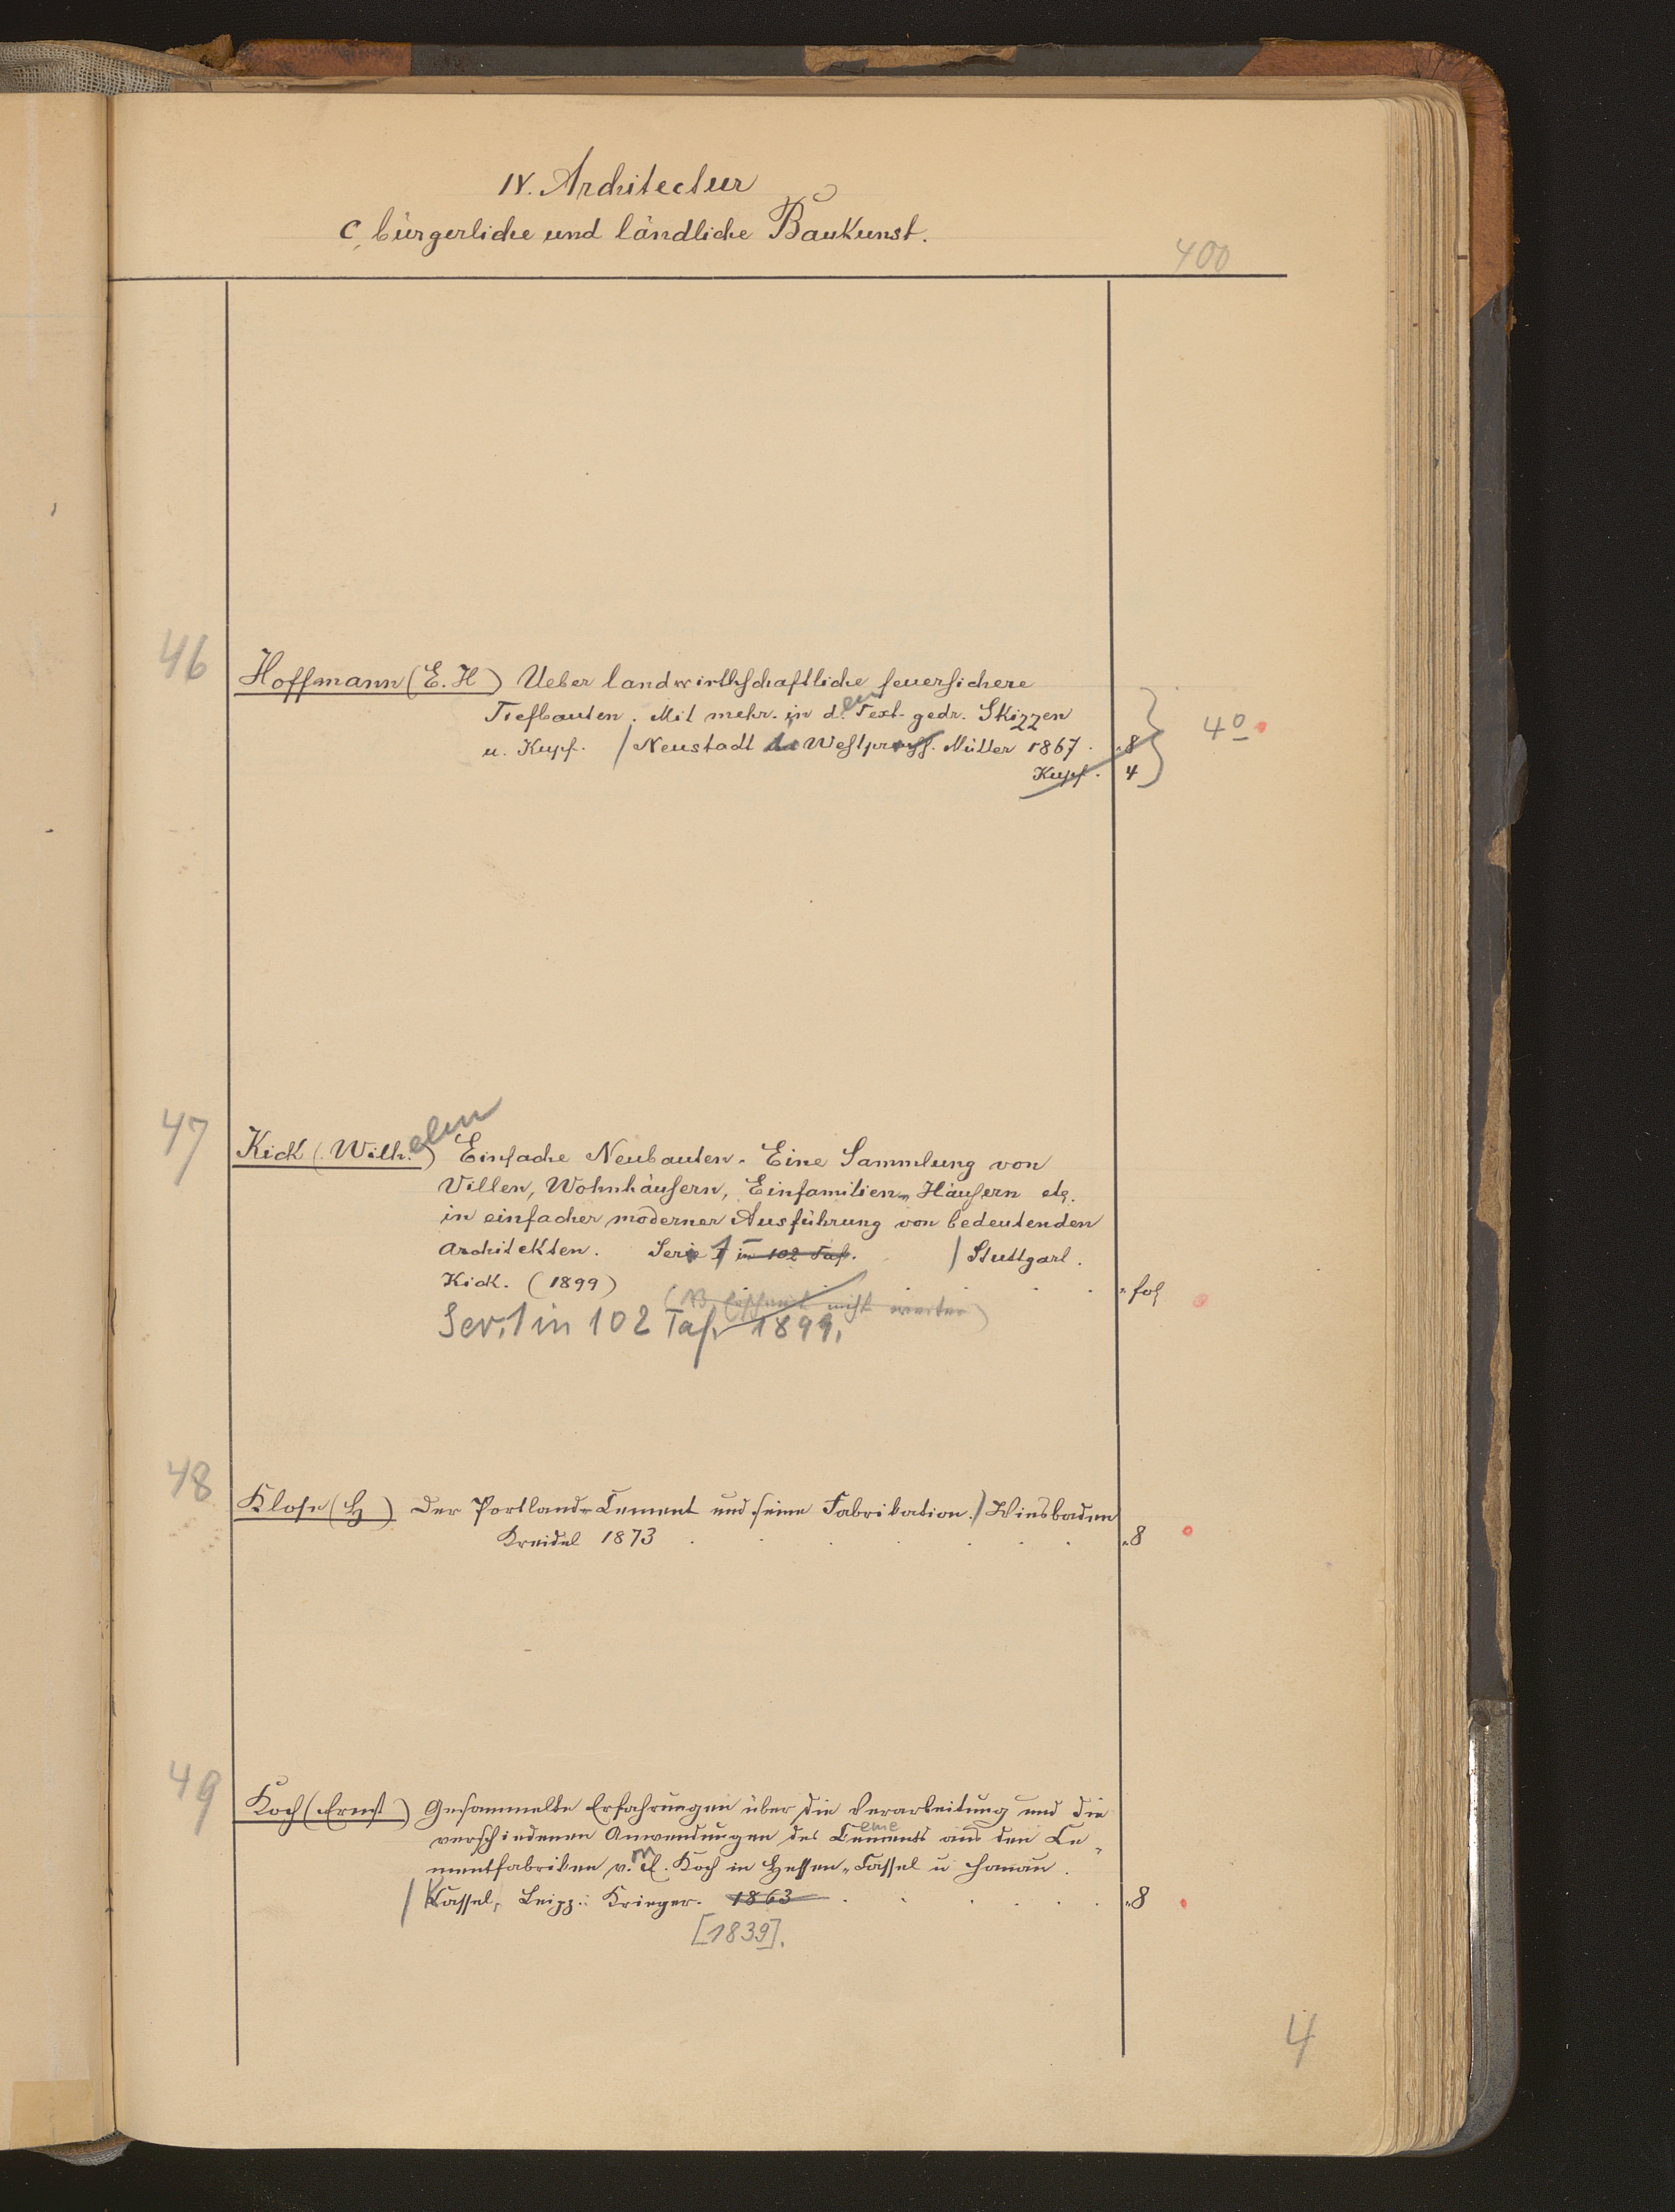 IV. Architectur
c, bürgerliche und ländliche Baukunst.
400
46
Hoffmann (E. H) Ueber landwirthschaftliche feuersichere
Tiefbauten. Mit mehr. in d.en Text gedr. Skizzen
u. Kupf. / Neustadt Westpreuss. Müller 1867. 8
Kupf. 4
4º
47
Kick (Wilh.elm) Einfache Neubauten. Eine Sammlung von
Villen, Wohnhäusern, Einfamilien-Häusern etc.
in einfacher moderner Ausführung von bedeutenden
Architekten. Serie I in 102 Taf. / Stuttgart.
Kick. (1899) fol
(NB erscheint nicht weiter)
Ser. 1 in 102 Taf. 1899.
48
Klose (H) Der Portland-Cement und seine Fabrikation. / Wiesbaden
Kreidel 1873 8
49
Koch (Ernst) Gesammelte Erfahrungen über die Verarbeitung und die
verschiedenen Anwendungen des Cements aus den Ce-
mentfabriken v. E. Koch in Hessen-Cassel u Hanau.
/ Kassel, Leipz.: Krieger. 1863 8
[1839].
4